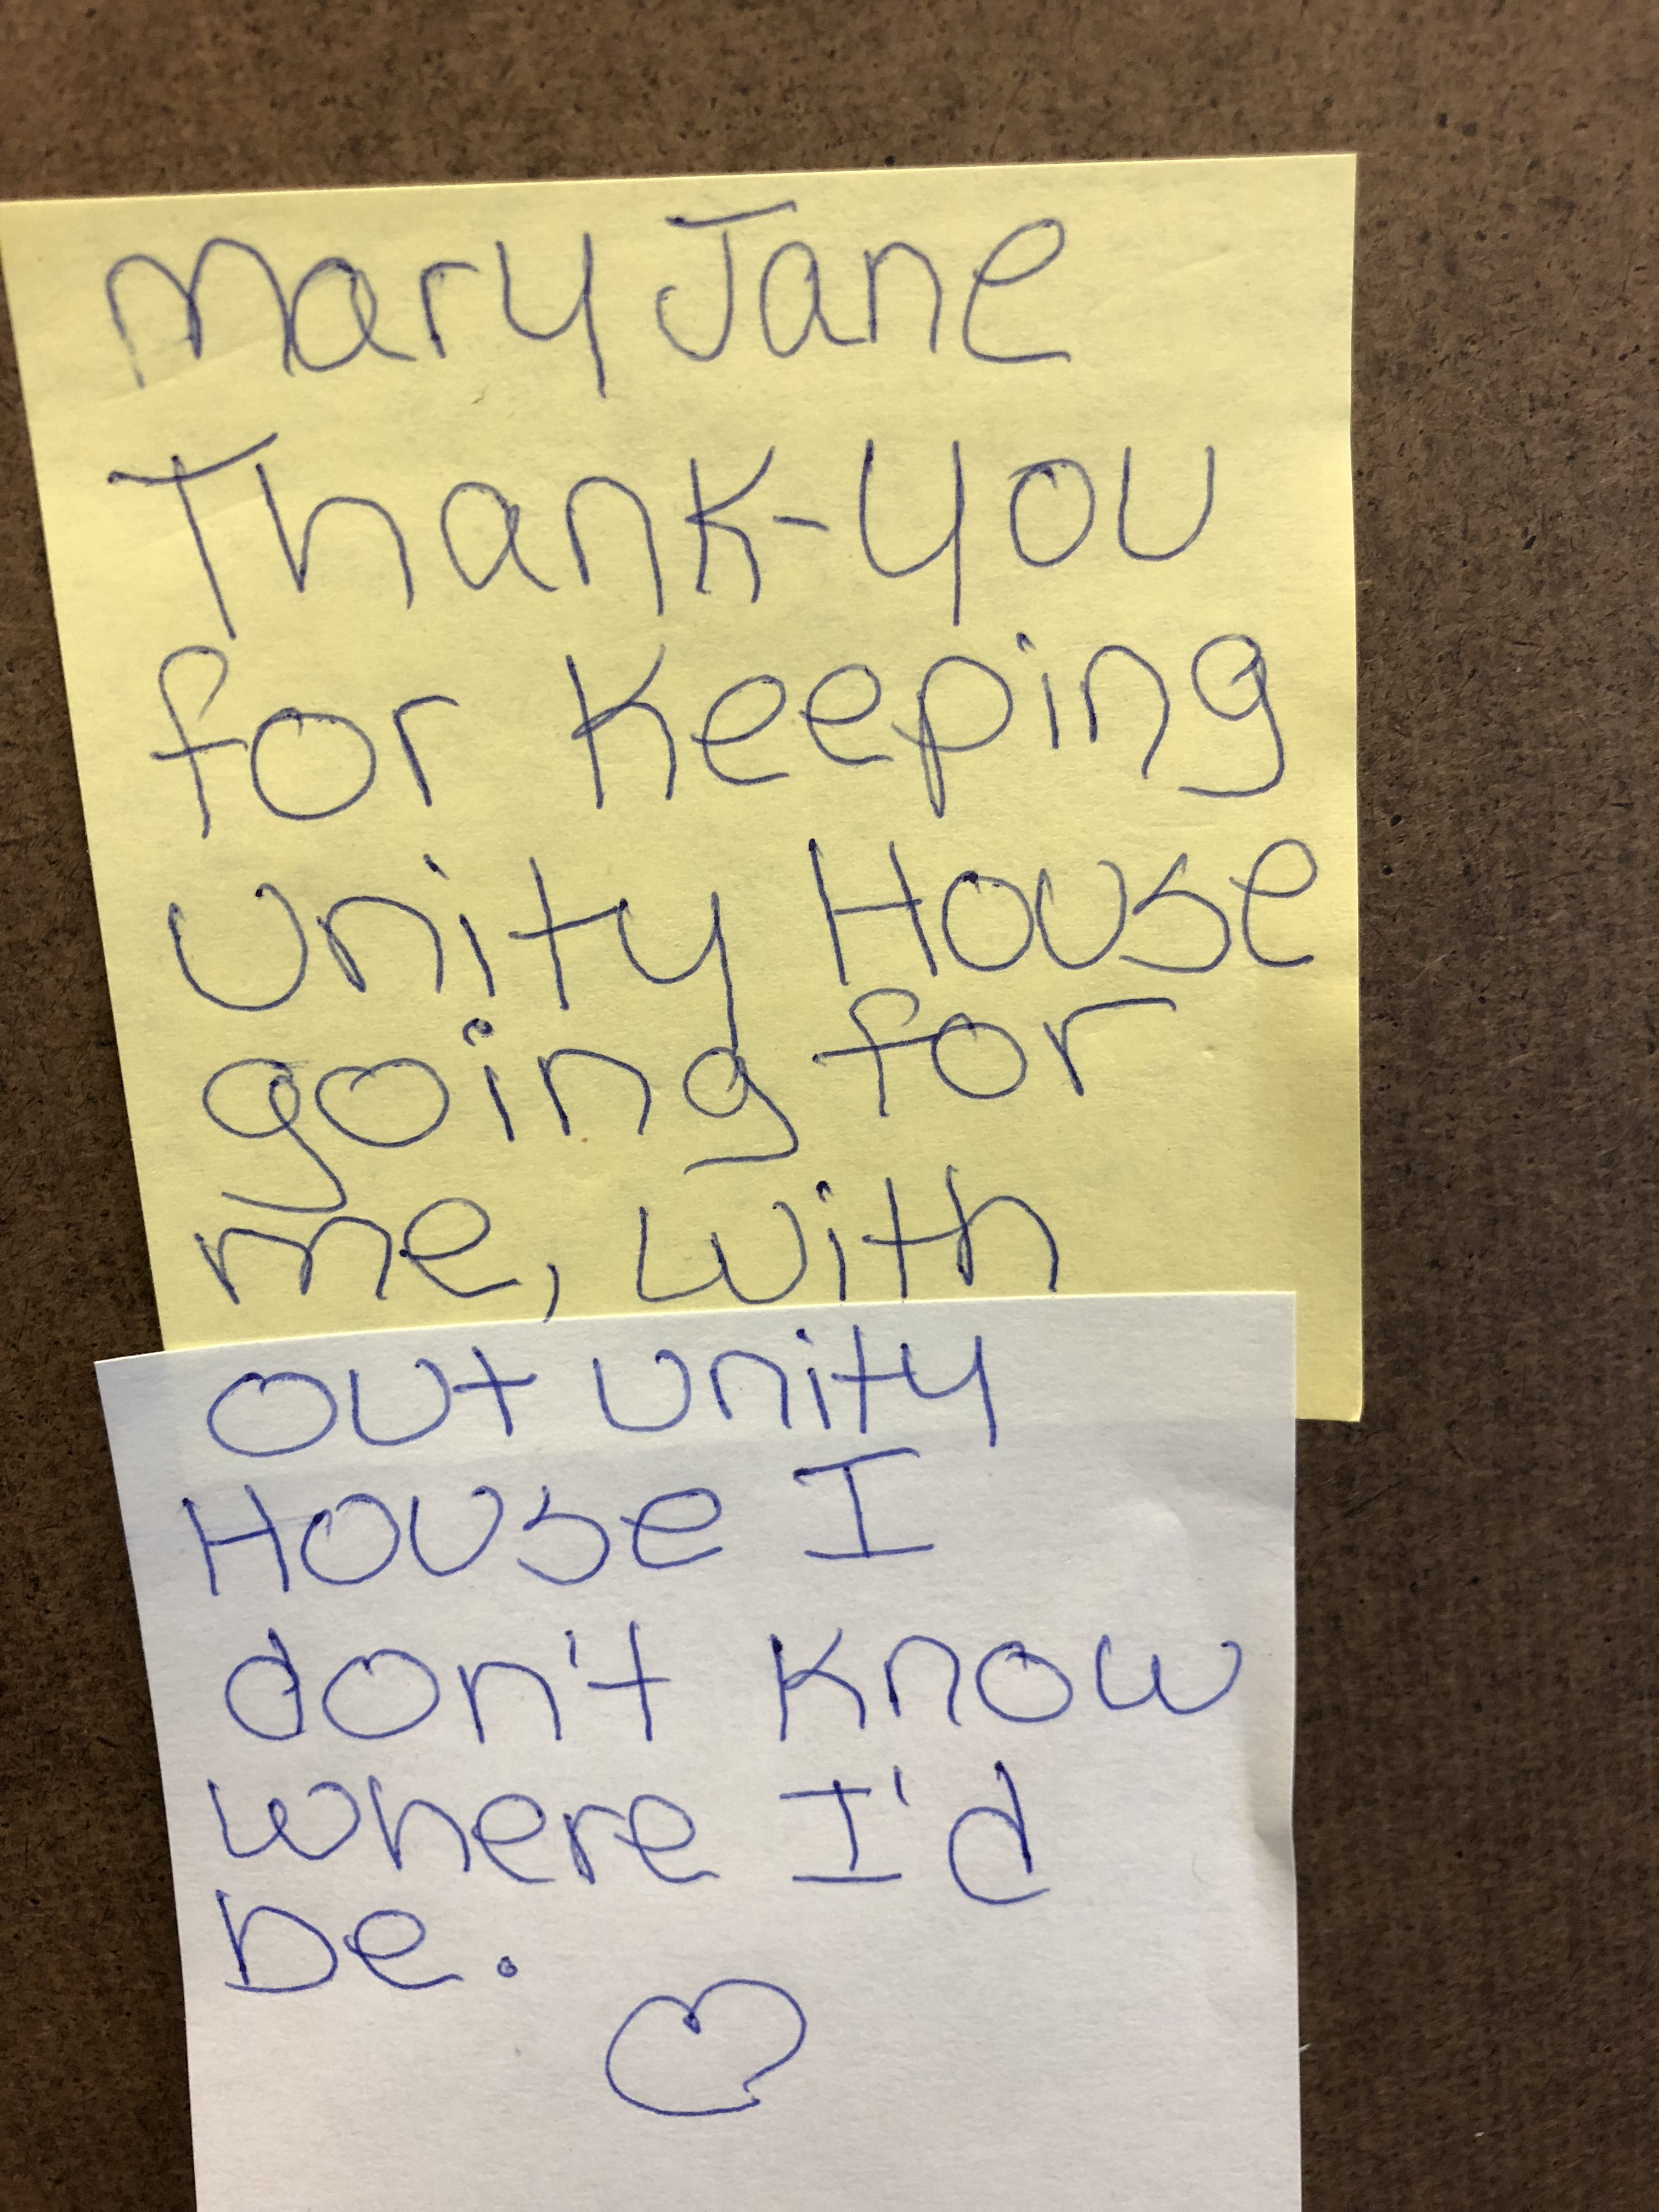 Mary Jane
Thank-you
for keeping
unity House
going for
me, with
out unity
House I
don't know
where I'd
be.